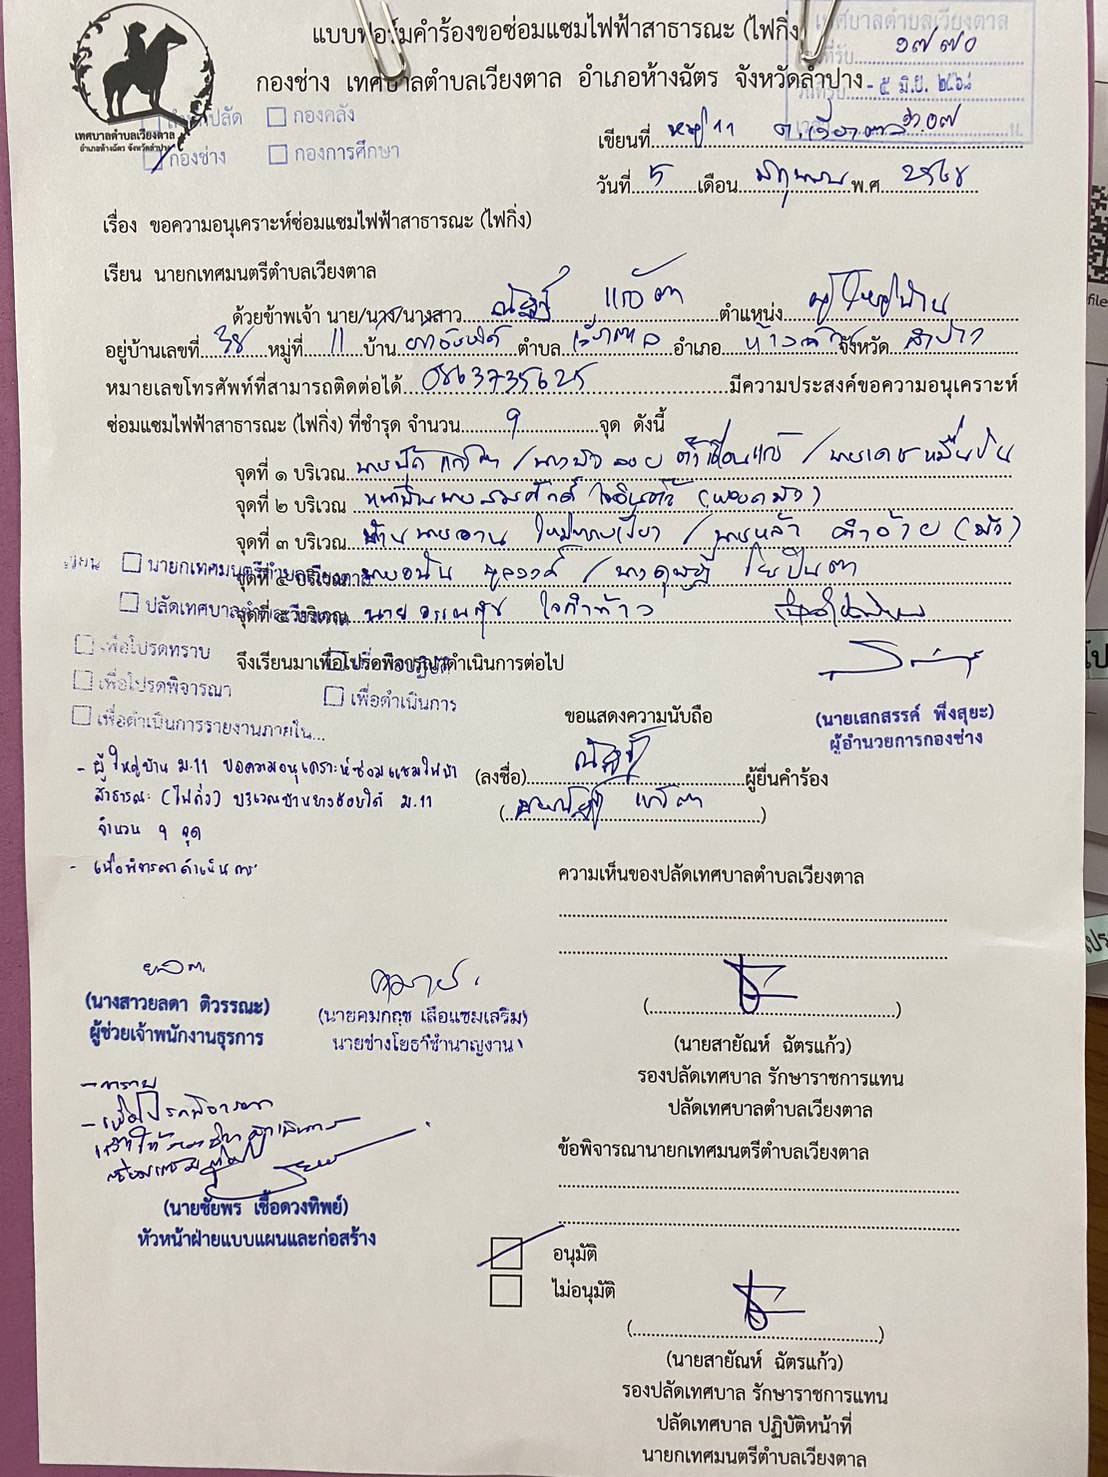 แบบฟอร์มคำร้องขอซ่อมแซมไฟฟ้าสาธารณะ (ไฟกิ่ง)
กองช่าง เทศบาลตำบลเวียงตาล อำเภอห้างฉัตร จังหวัดลำปาง
เทศบาลตำบลเวียงตาล
ที่รับ ๑๗๗๐
วันที่รับ - ๕ มิ.ย. ๒๕๖๘
เวลา น.
เทศบาลตำบลเวียงตาล
อำเภอห้างฉัตร จังหวัดลำปาง
สำนักปลัด กองคลัง
กองช่าง กองการศึกษา
เขียนที่ หมู่ 11 ต.เวียงตาล
วันที่ 5 เดือน มิถุนายน พ.ศ 2568
เรื่อง ขอความอนุเคราะห์ซ่อมแซมไฟฟ้าสาธารณะ (ไฟกิ่ง)
เรียน นายกเทศมนตรีตำบลเวียงตาล
ด้วยข้าพเจ้า นาย/นาง/นางสาว ตำแหน่ง ผู้ใหญ่บ้าน
อยู่บ้านเลขที่ 38 หมู่ที่ 11 บ้าน ยางอ้อยใต้ ตำบล เวียงตาล อำเภอ ห้างฉัตร จังหวัด ลำปาง
หมายเลขโทรศัพท์ที่สามารถติดต่อได้ 0863735625 มีความประสงค์ขอความอนุเคราะห์
ซ่อมแซมไฟฟ้าสาธารณะ (ไฟกิ่ง) ที่ชำรุด จำนวน 9 จุด ดังนี้
จุดที่ ๑ บริเวณ
จุดที่ ๒ บริเวณ หน้าบ้านนายสมศักดิ์
จุดที่ ๓ บริเวณ บ้านนาย / นายหล้า คำอ้าย
จุดที่ ๔ บริเวณ
จุดที่ ๕ บริเวณ นาย
เรียน นายกเทศมนตรีตำบลเวียงตาล
ปลัดเทศบาลตำบลเวียงตาล
เพื่อโปรดทราบ
จึงเรียนมาเพื่อโปรดพิจารณาดำเนินการต่อไป
เพื่อโปรดพิจารณา เพื่อดำเนินการ
เพื่อดำเนินการรายงานภายใน...
ขอแสดงความนับถือ
(นายเสกสรรค์ พึ่งสุยะ)
ผู้อำนวยการกองช่าง
(ลงชื่อ) ผู้ยื่นคำร้อง
- ผู้ใหญ่บ้าน ม.11 ขอความอนุเคราะห์ซ่อมแซมไฟฟ้า
สาธารณะ (ไฟกิ่ง) บริเวณบ้านยางอ้อยใต้ ม.11
จำนวน 9 จุด
- เพื่อพิจารณาดำเนินการ
ความเห็นของปลัดเทศบาลตำบลเวียงตาล
(นางสาวยลดา ติวรรณะ)
ผู้ช่วยเจ้าพนักงานธุรการ
(นายคมกฤช เสือแซมเสริม)
นายช่างโยธาชำนาญงาน
(นายสายัณห์ ฉัตรแก้ว)
รองปลัดเทศบาล รักษาราชการแทน
ปลัดเทศบาลตำบลเวียงตาล
- ทราบ
- เพื่อโปรดพิจารณา
(นายชัยพร เชื้อดวงทิพย์)
หัวหน้าฝ่ายแบบแผนและก่อสร้าง
ข้อพิจารณานายกเทศมนตรีตำบลเวียงตาล
อนุมัติ
ไม่อนุมัติ
(นายสายัณห์ ฉัตรแก้ว)
รองปลัดเทศบาล รักษาราชการแทน
ปลัดเทศบาล ปฏิบัติหน้าที่
นายกเทศมนตรีตำบลเวียงตาล